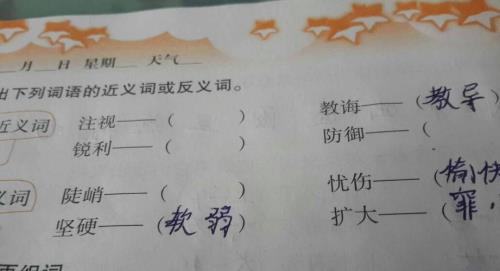 月 日 星期 天气
出下列词语的近义词或反义词。
近义词 注视——( ) 教诲——(教导)
锐利——( ) 防御——(
义词 陡峭——( ) 忧伤——(愉快
坚硬——(软弱) 扩大——(
组词